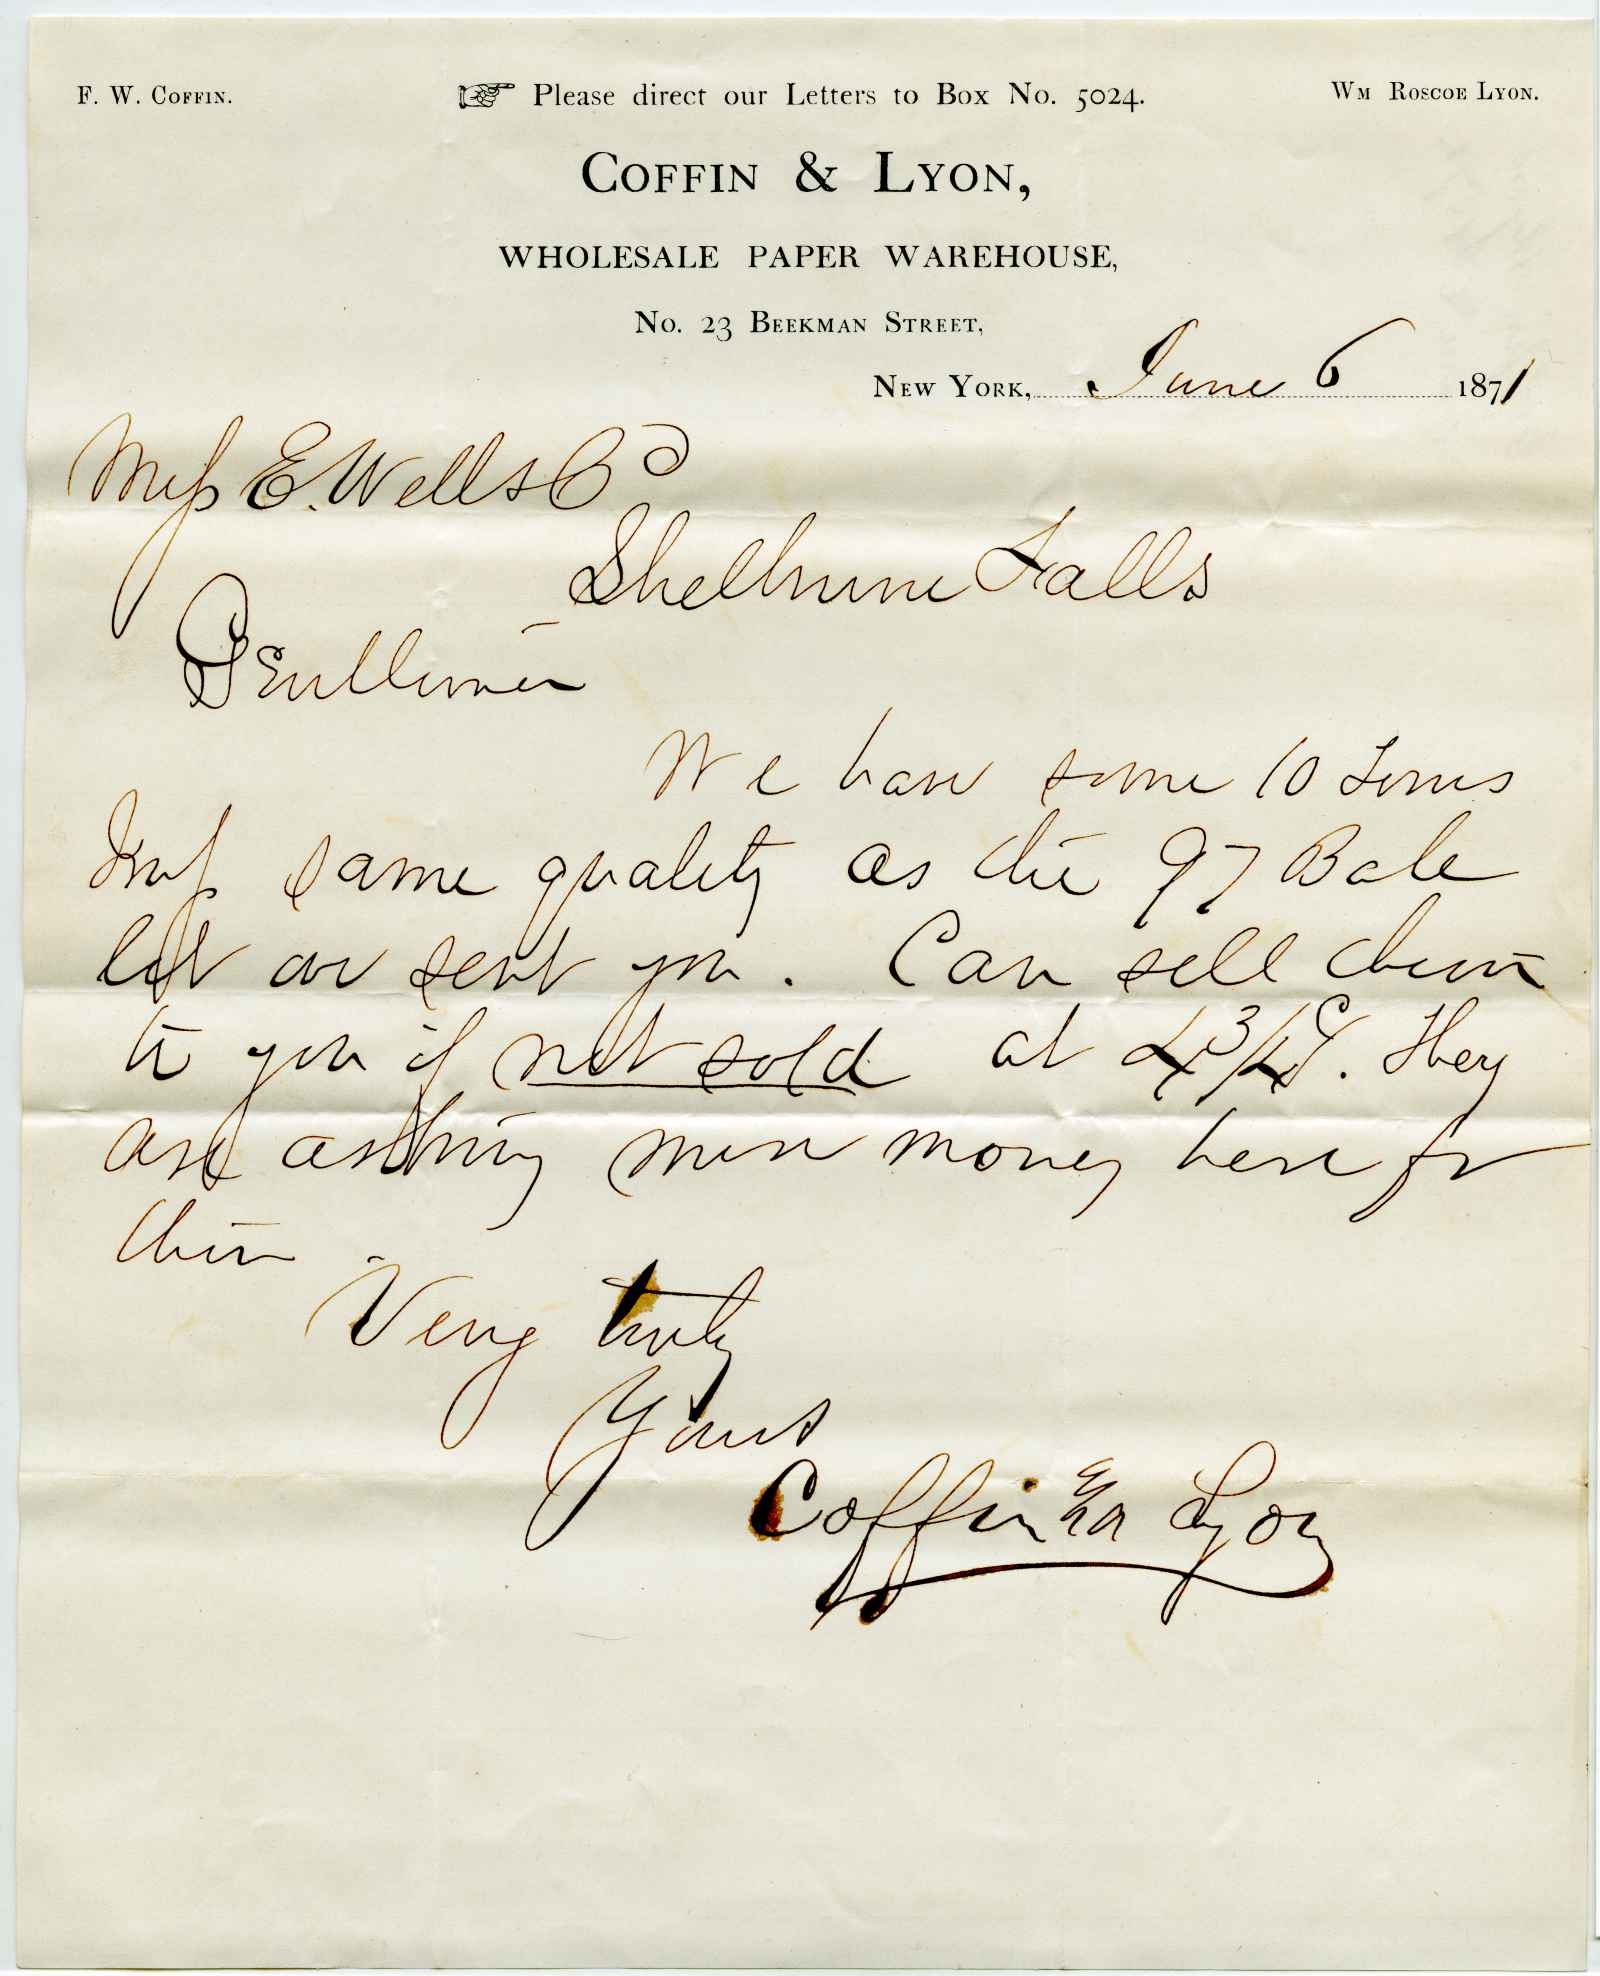 F. W. COFFIN.
Please direct our Letters to Box No. 5024.
WM ROSCOE LYON.
COFFIN & LYON,
WHOLESALE PAPER WAREHOUSE,
NO. 23 BEEKMAN STREET,
NEW YORK, June 6 1871
Mess E. Wells Co
Shelburne Falls
Gentlemen
We have some 10 Tons
same quality as the 97 Bale
lot we sent you. Can sell them
to you if not sold at 4 3/4 c. They
are asking more money here for
them
Very truly
Yours
Coffin & Lyon